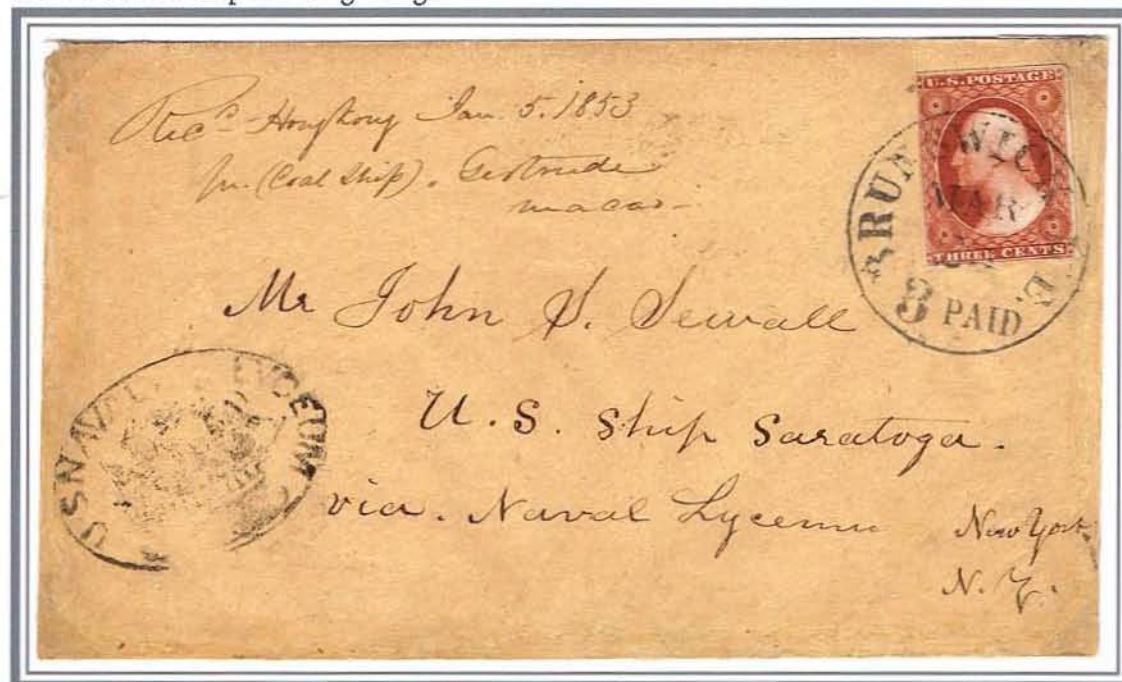 Rec'd Hongkong Jan. 5. 1853
pr. (Coal Ship). Gertrude
macao-
U.S. POSTAGE
THREE CENTS
BRUNSWICK ME.
MAR
3 PAID
Mr John S. Sewall
U.S. Ship Saratoga.
via. Naval Lyceum
New York
N.Y.
U.S. NAVAL LYCEUM